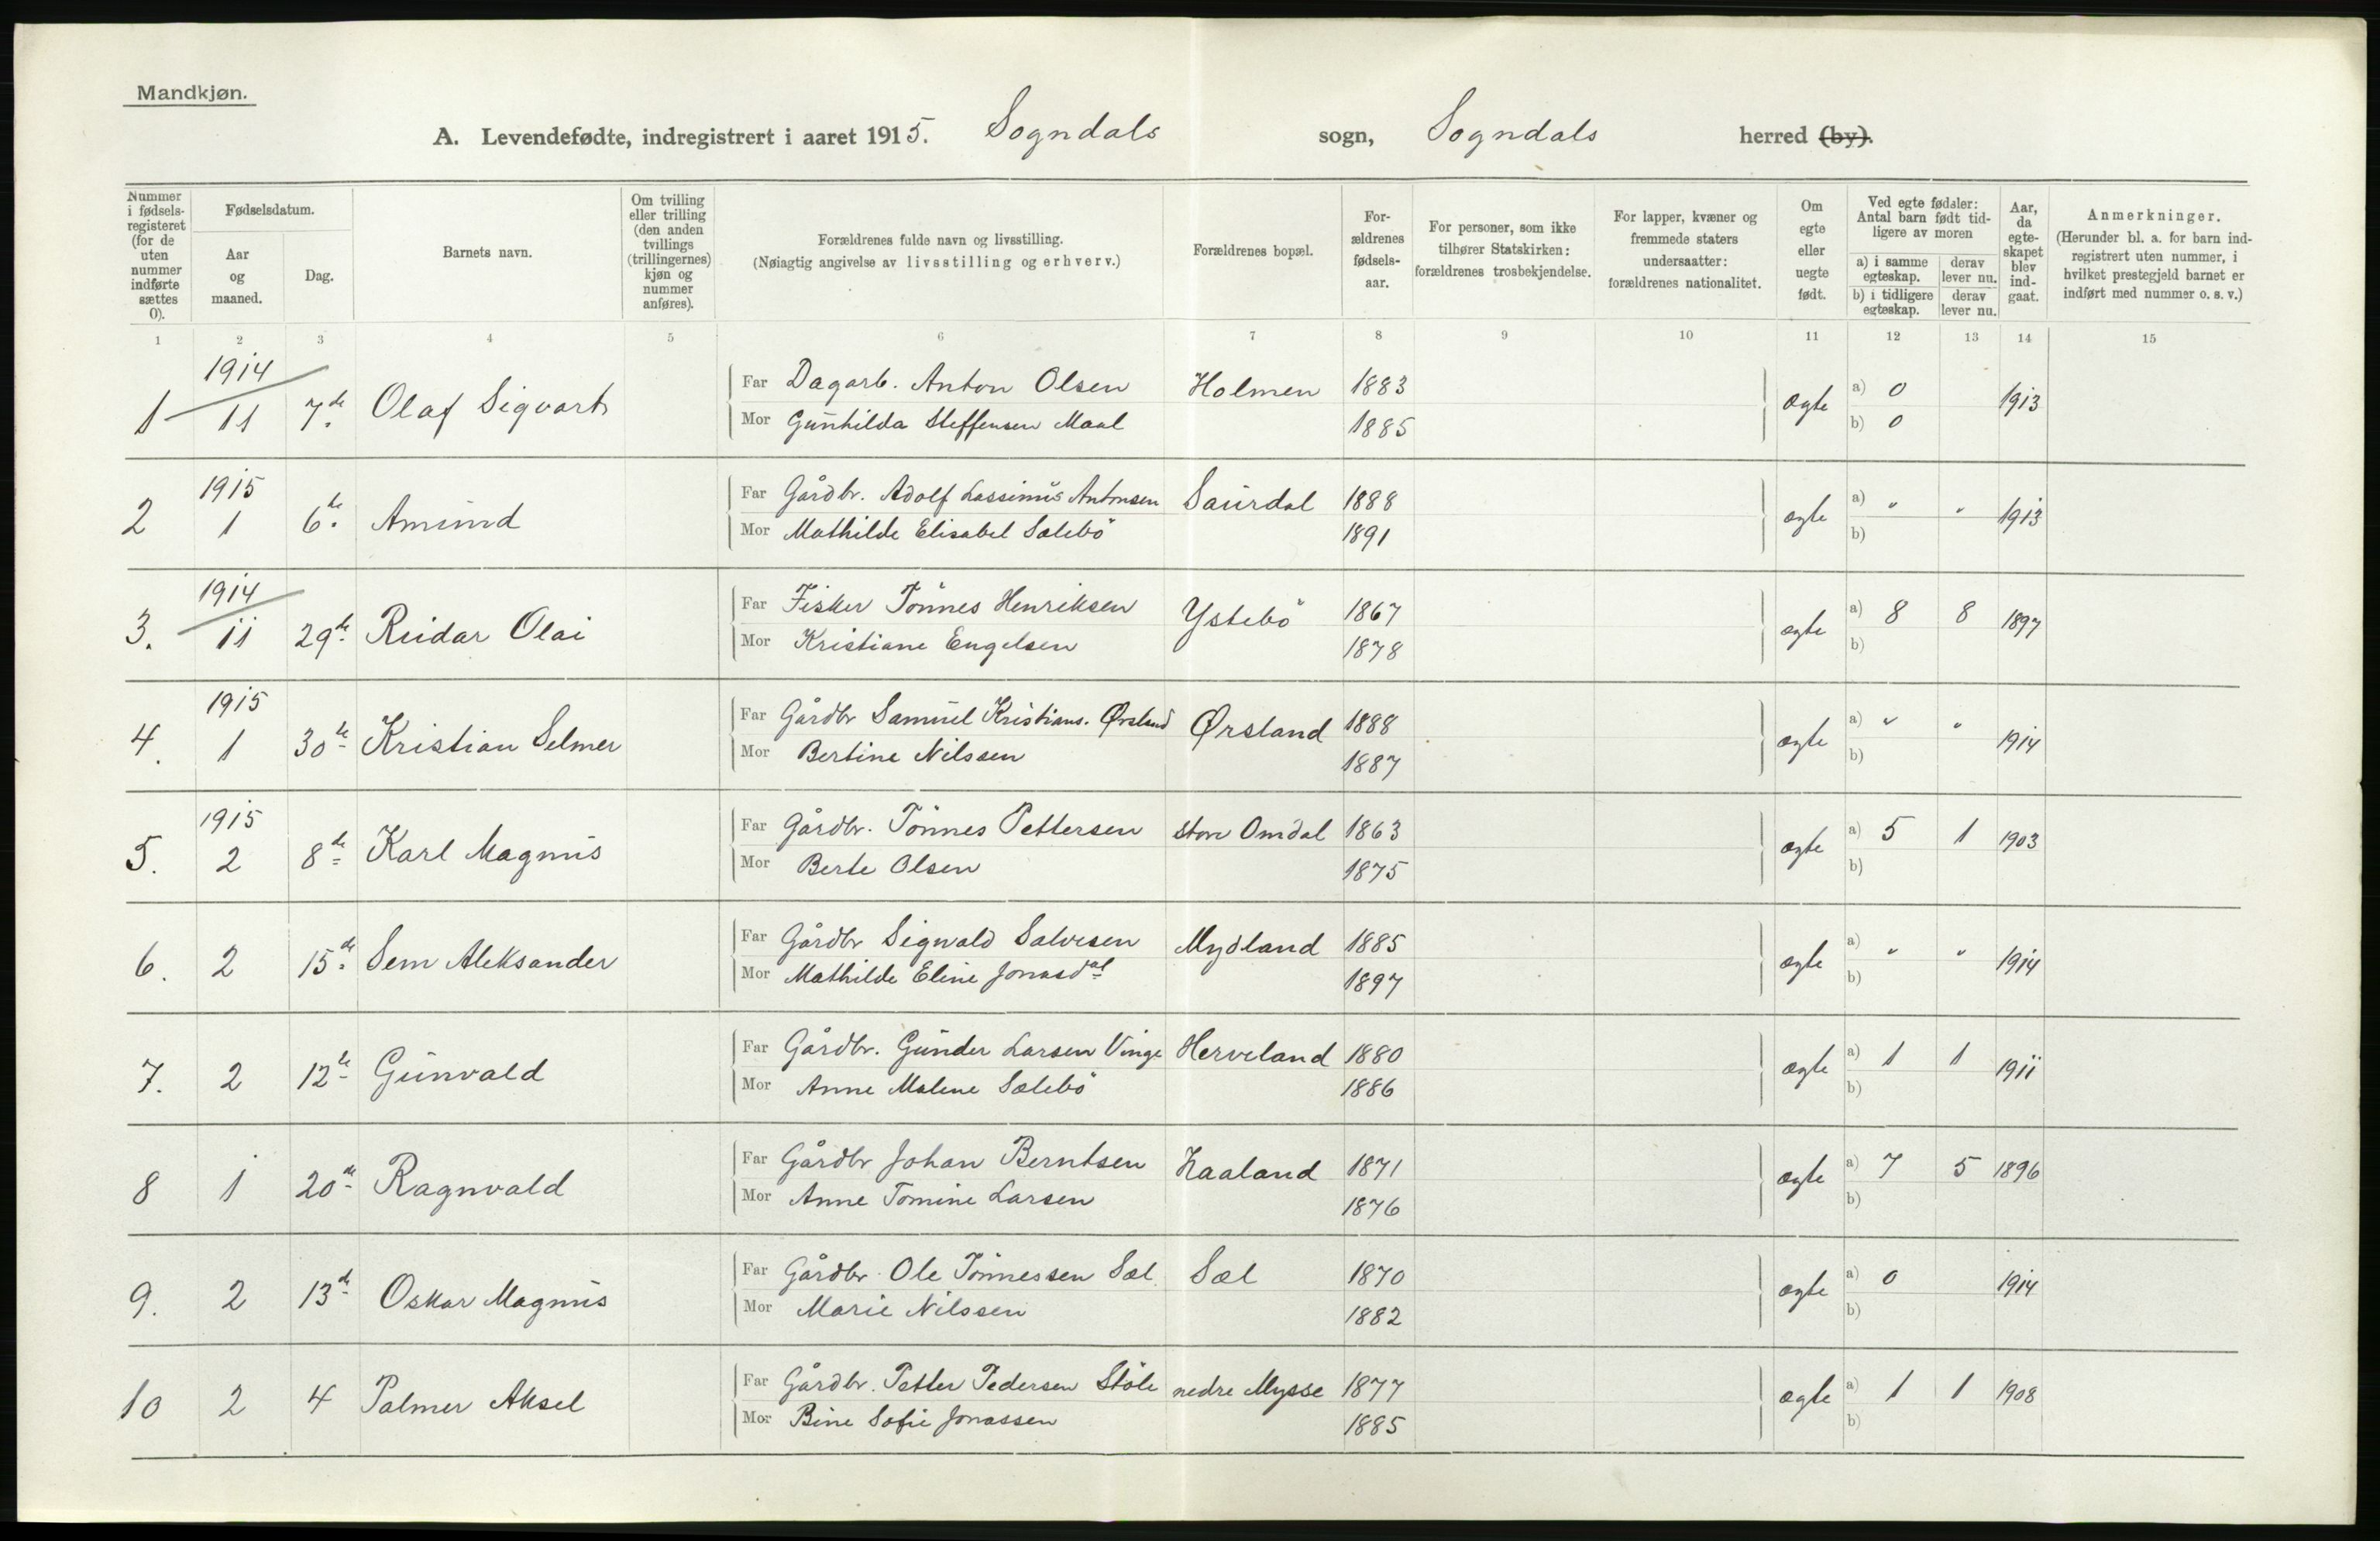 Mandkjøn.
A. Levendefødte, indregistrert i aaret 1915. Sogndals sogn, Sogndals herred (by).
Nummer i fødsels-registeret (for de uten nummer indførte sættes 0).
Fødselsdatum.
Aar og maaned.
Dag.
Barnets navn.
Om tvilling eller trilling (den anden tvillings (trillingernes) kjøn og nummer anføres).
Forældrenes fulde navn og livsstilling.
(Nøiagtig angivelse av livsstilling og erhverv.)
Forældrenes bopæl.
For-ældrenes fødsels-aar.
For personer, som ikke tilhører Statskirken: forældrenes trosbekjendelse.
For lapper, kvæner og fremmede staters undersaatter: forældrenes nationalitet.
Om egte eller uegte født.
Ved egte fødsler: Antal barn født tid-ligere av moren
a) i samme egteskap. derav lever nu.
b) i tidligere egteskap. derav lever nu.
Aar, da egte-skapet blev ind-gaat.
Anmerkninger.
(Herunder bl. a. for barn ind-registrert uten nummer, i hvilket prestegjeld barnet er indført med nummer o. s. v.)
1 2 3 4 5 6 7 8 9 10 11 12 13 14 15
1914
1 11 7de Olaf Sigvart Far Dagarb. Anton Olsen Holmen 1883 ægte a) 0 1913
Mor Gunhilda Steffensen Maal 1885 b) 0
1915
2 1 6te Amund Far Gårdbr. Adolf Lassinius Antonsen Saurdal 1888 ægte a) " " 1913
Mor Mathilde Elisabet Salebö 1891 b)
1914
3. 11 29de Reidar Olai Far Fisker Tönnes Henriksen Ystebö 1867 ægte a) 8 8 1897
Mor Kristiane Engelsen 1878 b)
1915
4. 1 30te Kristian Selmer Far Gårdbr Samuel Kristians. Ørsland Ørsland 1888 ægte a) " " 1914
Mor Bertine Nilssen 1887 b)
1915
5. 2 8de Karl Magnus Far Gårdbr. Tönnes Pettersen store Omdal 1863 ægte a) 5 1 1903
Mor Berte Olsen 1875 b)
6. 2 15de Sem Aleksander Far Gårdbr Sigvald Salvesen Mydland 1885 ægte a) " " 1914
Mor Mathilde Eline Jonasdat 1897 b)
7. 2 12te Gunvald Far Gårdbr. Gunder Larsen Vinge Herveland 1880 ægte a) 1 1 1911
Mor Anne Malene Salebö 1886 b)
8 1 20de Ragnvald Far Gårdbr Johan Berntsen Haaland 1871 ægte a) 7 5 1896
Mor Anne Tomine Larsen 1876 b)
9. 2 13de Oskar Magnus Far Gårdbr. Ole Tönnessen Sæl. Sæl 1870 ægte a) 0 1914
Mor Marie Nilssen 1882 b)
10 2 4 Palmer Aksel Far Gårdbr. Petter Pedersen Støle nedre Mysse 1877 ægte a) 1 1 1908
Mor Bine Sofie Jonassen 1885 b)